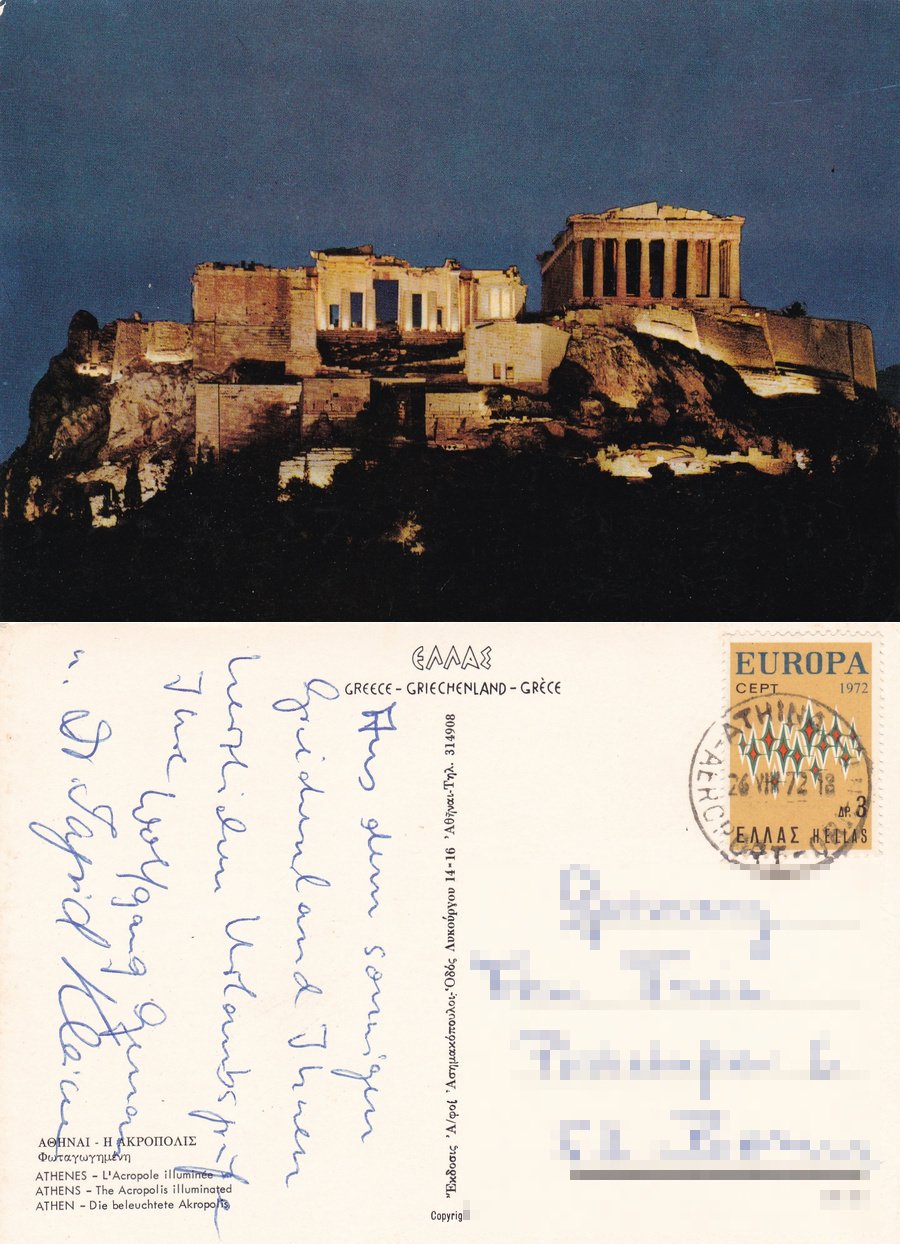 ΕΛΛΑΣ
GREECE – GRIECHENLAND – GRÈCE
EUROPA
CEPT 1972
ΔΡ. 3
ΕΛΛΑΣ HELLAS
ATHINAI
AEROPORT
26 VIII 72 18
Aus dem sonnigen
Griechenland Ihnen
herzlichen Urlaubsgruß
Ihre Wolfgang
u. Dr. Sigrid
Ἔκδοσις Ἀ/φοί Ἀσημακόπουλοι-Ὁδός Λυκούργου 14-16 Ἀθῆναι-Τηλ. 314908
ΑΘΗΝΑΙ - Η ΑΚΡΟΠΟΛΙΣ
Φωταγωγημένη
ATHENES – L'Acropole illuminée
ATHENS – The Acropolis illuminated
ATHEN – Die beleuchtete Akropolis
Copyrig